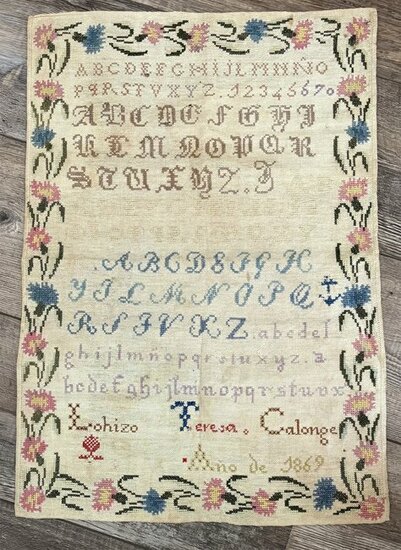 ABCDEFGHIJLMNÑO
PQRSTUVXYZ. 1234567o
ABCDEFGHI
KLMNOPQR
STUXYZ. J
.ABCDEFGH
YJLMNÓPQ
RSTVXZ.abcdef
ghijlmñopqrstuxyz.a
bcdefghijlmnopqrstuvx
Lohizo Teresa. Calonge
Ano de 1869